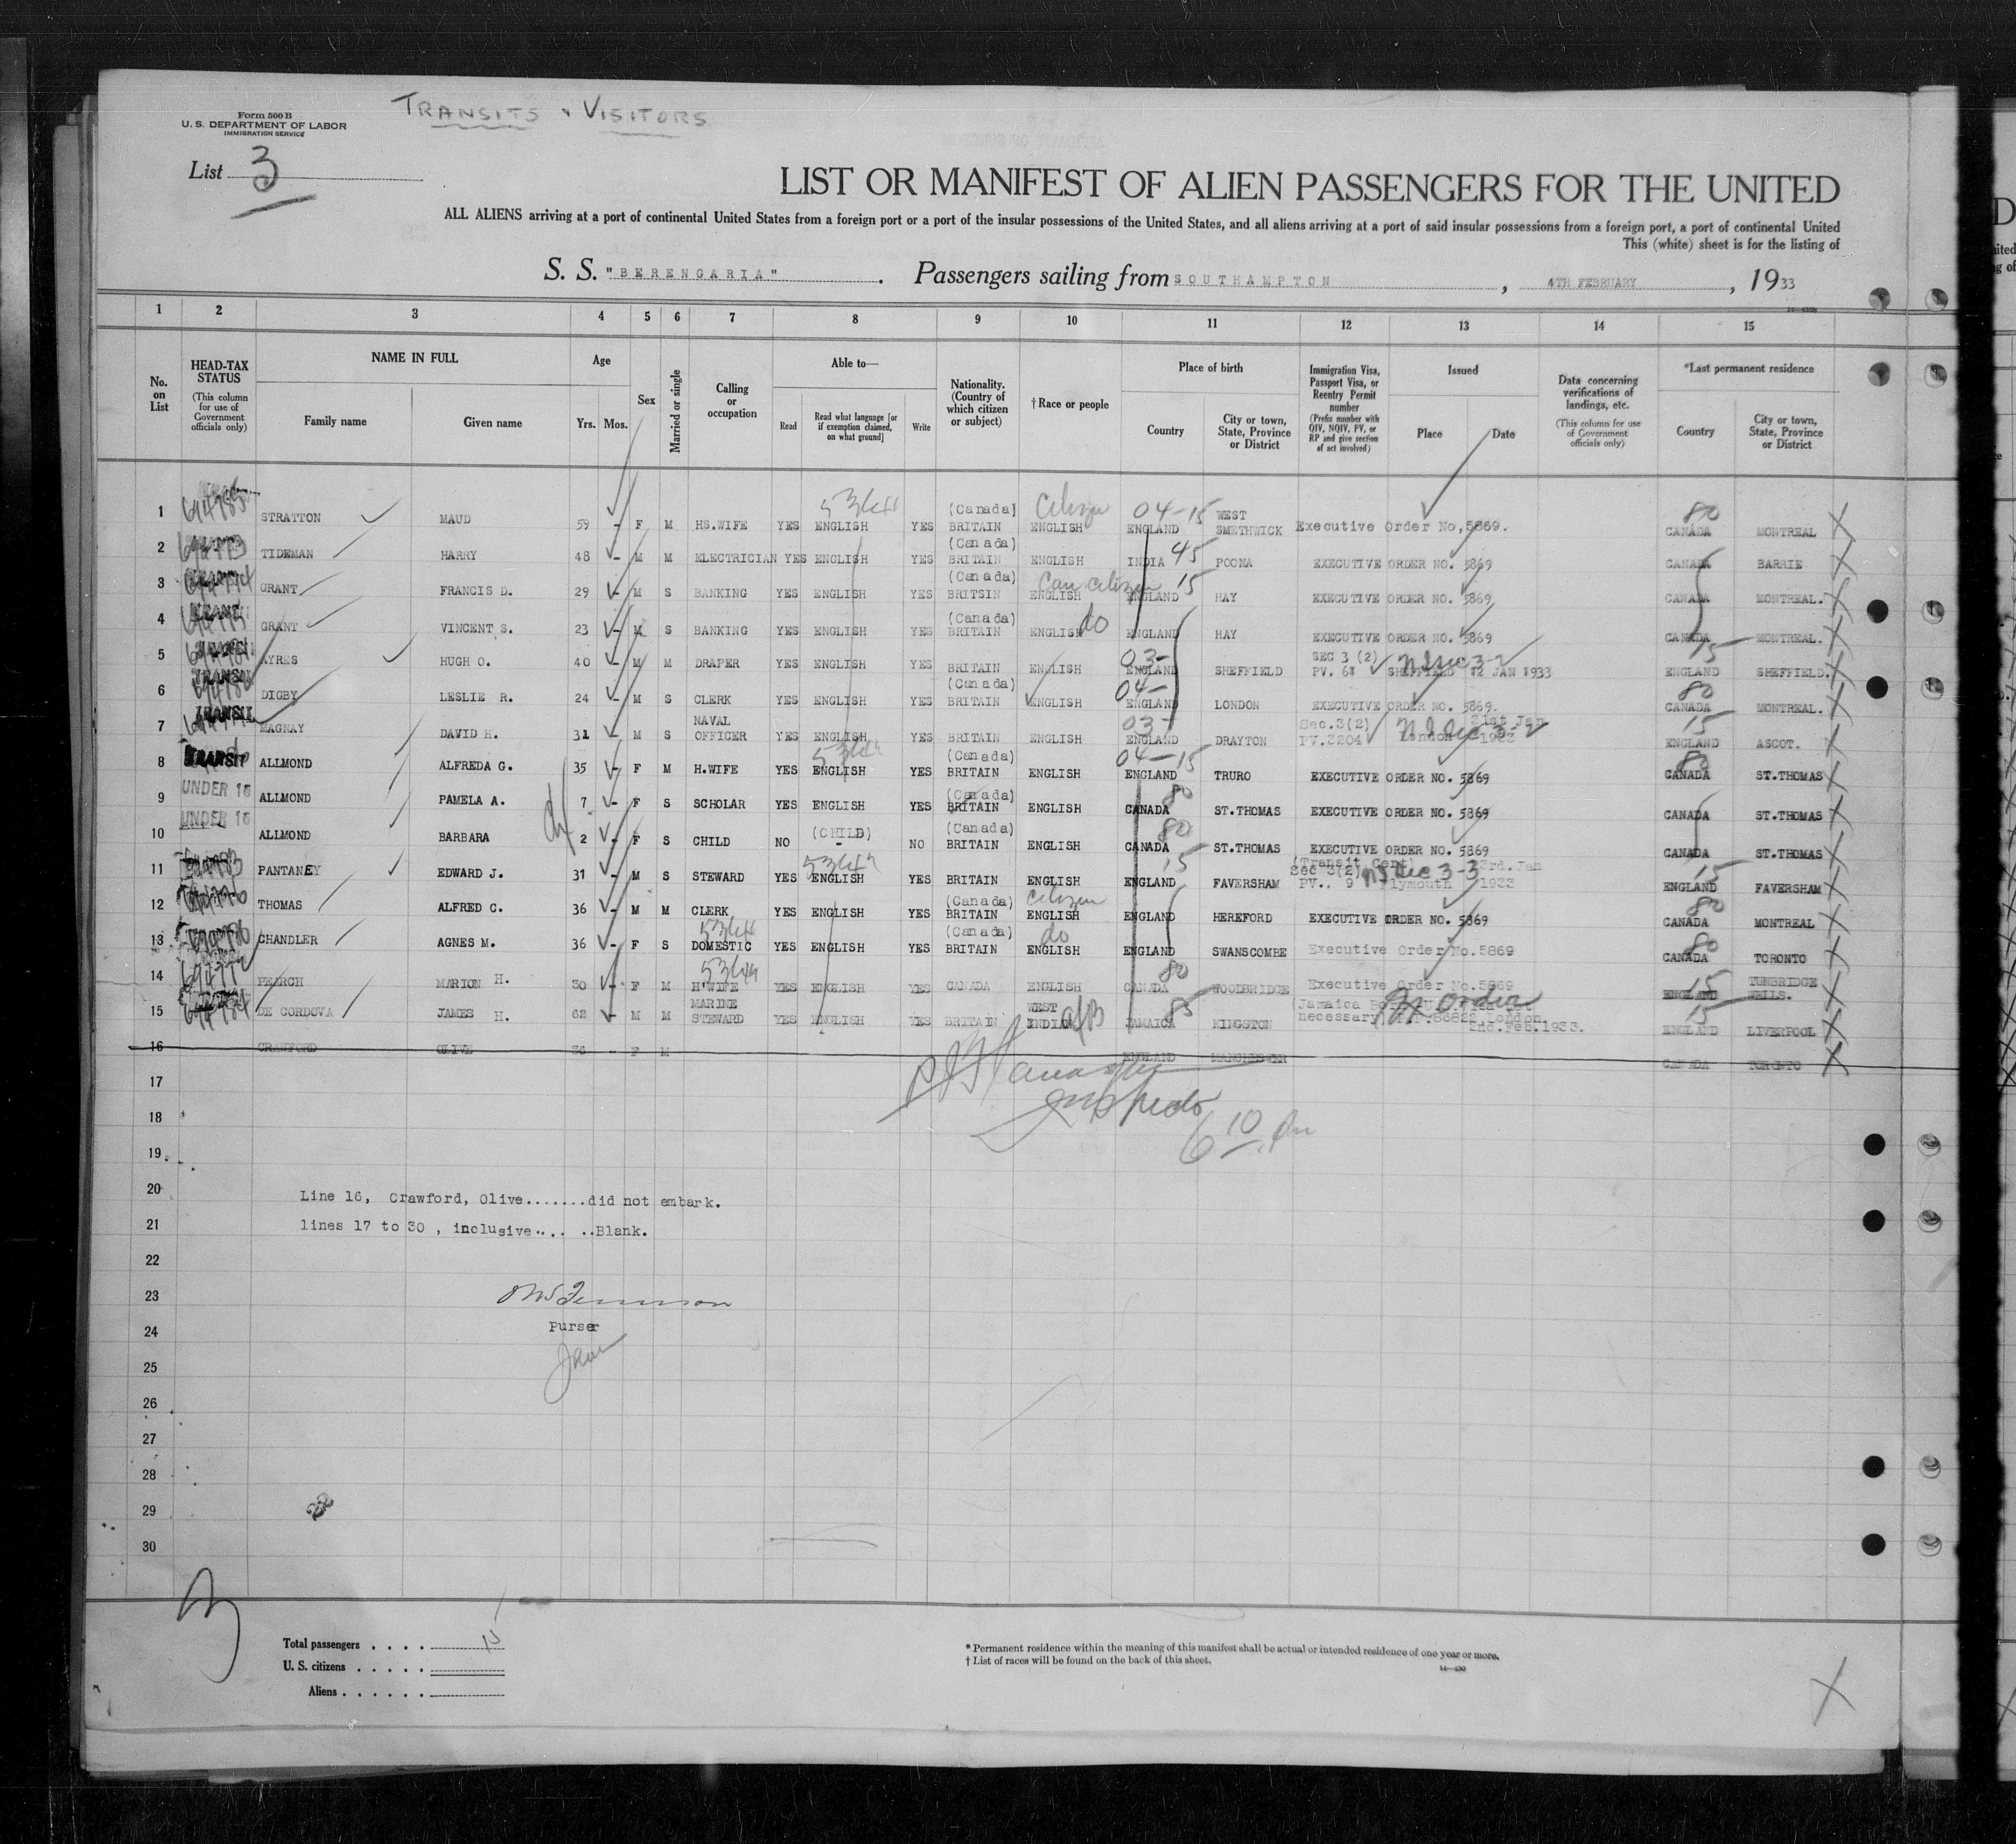 TRANSITS & VISITORS
Form 500 B
U. S. DEPARTMENT OF LABOR
IMMIGRATION SERVICE
List 3
LIST OR MANIFEST OF ALIEN PASSENGERS FOR THE UNITED
ALL ALIENS arriving at a port of continental United States from a foreign port or a port of the insular possessions of the United States, and all aliens arriving at a port of said insular possessions from a foreign port, a port of continental United
This (white) sheet is for the listing of
S. S. "BERENGARIA". Passengers sailing from SOUTHAMPTON, 4TH FEBRUARY, 1933
1 2 3 4 5 6 7 8 9 10 11 12 13 14 15
No. on List
HEAD-TAX STATUS (This column for use of Government officials only)
NAME IN FULL
Family name Given name
Age
Yrs. Mos.
Sex
Married or single
Calling or occupation
Able to—
Read Read what language [or if exemption claimed, on what ground] Write
Nationality. (Country of which citizen or subject)
† Race or people
Place of birth
Country City or town, State, Province or District
Immigration Visa, Passport Visa, or Reentry Permit number (Prefix number with QIV, NQIV, PV, or RP and give section of act involved)
Issued
Place Date
Data concerning verifications of landings, etc. (This column for use of Government officials only)
*Last permanent residence
Country City or town, State, Province or District
1 STRATTON MAUD 59 - F M HS.WIFE YES ENGLISH YES (Canada) BRITAIN ENGLISH Citizen ENGLAND 04-15 WEST SMETHWICK Executive Order No,5869. 80 CANADA MONTREAL
2 TIDEMAN HARRY 48 - M M ELECTRICIAN YES ENGLISH YES (Canada) BRITAIN ENGLISH INDIA 45 POONA EXECUTIVE ORDER NO. 5869 CANADA BARRIE
3 GRANT FRANCIS D. 29 - M S BANKING YES ENGLISH YES (Canada) BRITSIN ENGLISH Can citizen ENGLAND 15 HAY EXECUTIVE ORDER NO. 5869 CANADA MONTREAL.
4 GRANT VINCENT S. 23 - M S BANKING YES ENGLISH YES (Canada) BRITAIN ENGLISH do ENGLAND HAY EXECUTIVE ORDER NO. 5869 CANADA MONTREAL.
5 AYRES HUGH O. 40 - M M DRAPER YES ENGLISH YES BRITAIN ENGLISH 03- ENGLAND SHEFFIELD SEC 3 (2) PV. SHEFFIELD 12 JAN 1933 15 ENGLAND SHEFFIELD.
6 TRANSIT DIGBY LESLIE R. 24 - M S CLERK YES ENGLISH YES (Canada) BRITAIN ENGLISH 04- ENGLAND LONDON EXECUTIVE ORDER NO. 5869. 80 CANADA MONTREAL.
7 TRANSIT MAGNAY DAVID H. 31 - M S NAVAL OFFICER YES ENGLISH YES BRITAIN ENGLISH 03- ENGLAND DRAYTON Sec.3(2) PV.3204 London 31st Jan 1933 15 ENGLAND ASCOT.
8 TRANSIT ALLMOND ALFREDA G. 35 - F M H.WIFE YES ENGLISH YES (Canada) BRITAIN ENGLISH 04-15 ENGLAND TRURO EXECUTIVE ORDER NO. 5869 80 CANADA ST.THOMAS
9 UNDER 16 ALLMOND PAMELA A. 7 - F S SCHOLAR YES ENGLISH YES (Canada) BRITAIN ENGLISH 80 CANADA ST.THOMAS EXECUTIVE ORDER NO. 5869 CANADA ST.THOMAS
10 UNDER 16 ALLMOND BARBARA 2 - F S CHILD NO (CHILD) - NO (Canada) BRITAIN ENGLISH 80 CANADA ST.THOMAS EXECUTIVE ORDER NO. 5869 CANADA ST.THOMAS
11 PANTANEY EDWARD J. 31 - M S STEWARD YES ENGLISH YES BRITAIN ENGLISH 15 ENGLAND FAVERSHAM (Transit Cert) Sec 3(2) PV.. 9 Plymouth 23rd.Jan 1933 15 ENGLAND FAVERSHAM
12 THOMAS ALFRED C. 36 - M M CLERK YES ENGLISH YES (Canada) BRITAIN ENGLISH Citizen ENGLAND HEREFORD EXECUTIVE ORDER NO. 5869 80 CANADA MONTREAL
13 CHANDLER AGNES M. 36 - F S DOMESTIC YES ENGLISH YES (Canada) BRITAIN ENGLISH do ENGLAND SWANSCOMBE Executive Order No.5869 80 CANADA TORONTO
14 PEARCH MARION H. 30 - F M H'WIFE YES ENGLISH YES CANADA ENGLISH 80 CANADA WOODBRIDGE Executive Order No.5869 15 ENGLAND TUNBRIDGE WELLS.
15 DE CORDOVA JAMES H. 62 - M M MARINE STEWARD YES ENGLISH YES BRITAIN WEST INDIAN JAMAICA 85 KINGSTON (Jamaica necessary) London 2nd.Feb.1933. 15 ENGLAND LIVERPOOL
16 CRAWFORD OLIVE 36 - F M ENGLAND MANCHESTER CANADA TORONTO
17
18
6 10 pm
19
20
Line 16, Crawford, Olive.......did not embark.
21
lines 17 to 30 , inclusive.... ..Blank.
22
23
Purser
24
25
26
27
28
29
30
Total passengers . . . . 15
U. S. citizens . . . . .
Aliens . . . . . .
* Permanent residence within the meaning of this manifest shall be actual or intended residence of one year or more.
† List of races will be found on the back of this sheet.